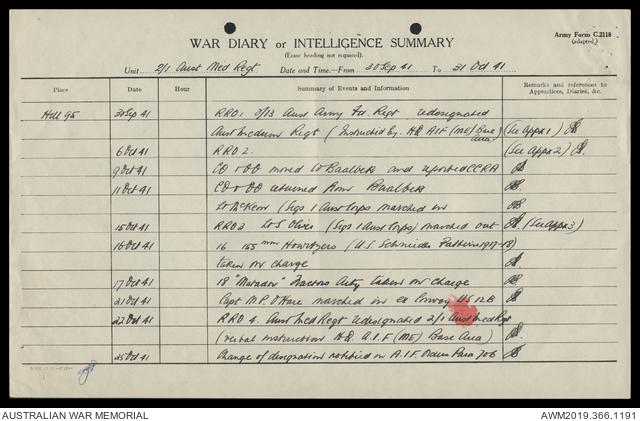 Army Form C.2118
(adapted.)
WAR DIARY or INTELLIGENCE SUMMARY
(Erase heading not required).
Unit 2/1 Aust Med Regt Date and Time.—From 30 Sep 41 To 31 Oct 41
Place Date Hour Summary of Events and Information Remarks and references to Appendices, Diaries, &c.
Hill 95 30 Sep 41 RRO 1 2/13 Aust Army Fd. Regt redesignated
Aust Medium Regt (Instructed by HQ AIF (ME) Base Area) (See Appx 1)
6 Oct 41 RRO 2. (See Appx 2)
9 Oct 41 CO & moved to Baalbek and reported CCRA
11 Oct 41 CO & returned from Baalbek
Lt McKern (Sigs 1 Aust Corps marched in
15 Oct 41 RRO 3 Lt S Oliver (Sigs 1 Aust Corps) marched out (See Appx 3)
16 Oct 41 16 155 mm Howitzers (U.S. Schneider Pattern 1917-18)
taken on charge
17 Oct 41 18 "Matador" Tractors Arty taken on charge
21 Oct 41 Capt M.P. O'Hare marched in ex Convoy US 12B
22 Oct 41 RRO 4. Aust Med Regt redesignated 2/1 Aust Med Regt
(verbal instruction HQ A.I.F (ME) Base Area)
25 Oct 41 Change of designation notified in A.I.F. Orders Para 706
AUSTRALIAN WAR MEMORIAL AWM2019.366.1191